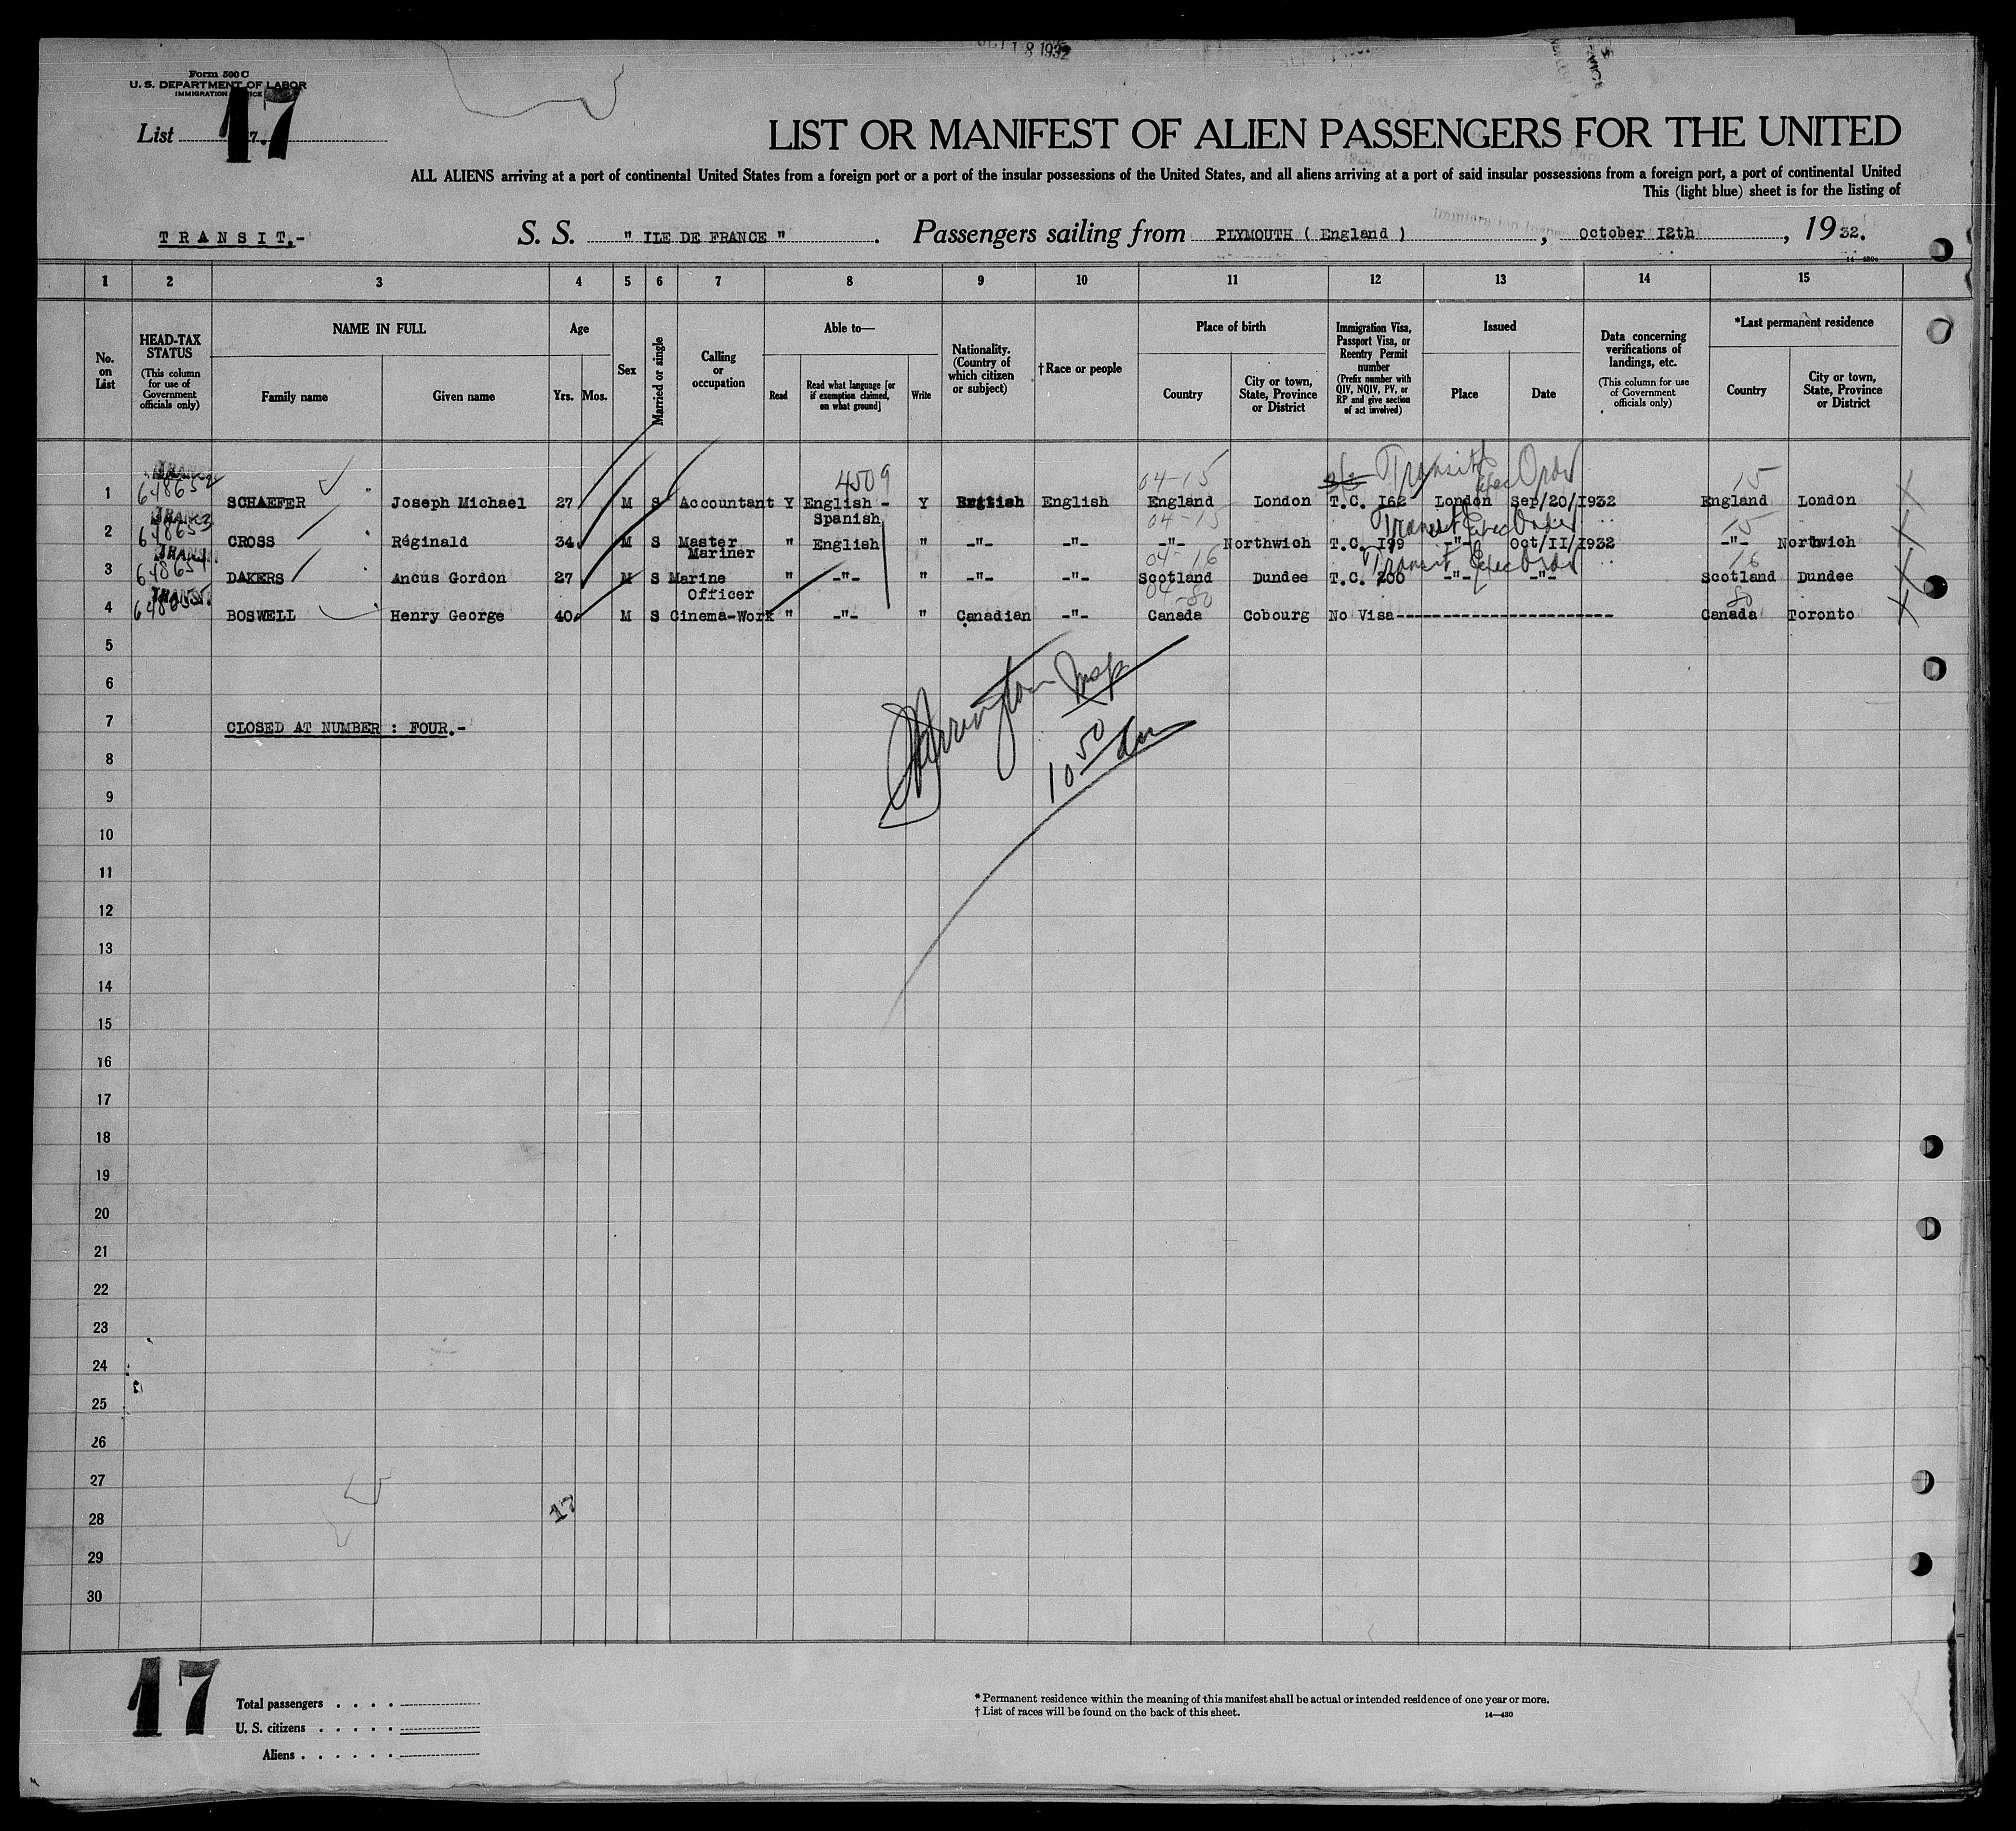 18 1932
Form 500 C
U. S. DEPARTMENT OF LABOR
IMMIGRATION
List 17
LIST OR MANIFEST OF ALIEN PASSENGERS FOR THE UNITED
ALL ALIENS arriving at a port of continental United States from a foreign port or a port of the insular possessions of the United States, and all aliens arriving at a port of said insular possessions from a foreign port, a port of continental United
This (light blue) sheet is for the listing of
TRANSIT.- S. S. " ILE DE FRANCE ". Passengers sailing from PLYMOUTH ( England ), October I2th, 19 32.
14—430a
1 2 3 4 5 6 7 8 9 10 11 12 13 14 15
No. on List
HEAD-TAX STATUS
(This column for use of Government officials only)
NAME IN FULL
Family name Given name
Age
Yrs. Mos.
Sex
Married or single
Calling or occupation
Able to—
Read Read what language [or if exemption claimed, on what ground] Write
Nationality. (Country of which citizen or subject)
†Race or people
Place of birth
Country City or town, State, Province or District
Immigration Visa, Passport Visa, or Reentry Permit number
(Prefix number with QIV, NQIV, PV, or RP and give section of act involved)
Issued
Place Date
Data concerning verifications of landings, etc.
(This column for use of Government officials only)
*Last permanent residence
Country City or town, State, Province or District
4509 04-15 Transit 15
1 648652 SCHAEFER Joseph Michael 27 M S Accountant Y English - Y English England London T.C. I62 London Sep/20/1932 England London
Spanish 04-15 Transit 15
2 648653 CROSS Réginald 34 M S Master " English " -"- -"- -"- Northwich T.C. I99 -"- Oct/II/1932 -"- Northwich
Mariner 04-16 Transit 16
3 DAKERS Ancus Gordon 27 M S Marine " -"- " -"- -"- Scotland Dundee T.C. 200 -"- -"- Scotland Dundee
Officer 04-80 80
4 BOSWELL Henry George 40 M S Cinema-Work " -"- " Canadian -"- Canada Cobourg No Visa----------------------- Canada Toronto
5
6
Insp
7 CLOSED AT NUMBER : FOUR.-
10 50 am
8
9
10
11
12
13
14
15
16
17
18
19
20
21
22
23
24
25
26
27
28
17
29
30
17
Total passengers . . . .
U. S. citizens . . . . .
Aliens . . . . . .
* Permanent residence within the meaning of this manifest shall be actual or intended residence of one year or more.
† List of races will be found on the back of this sheet.
14—430